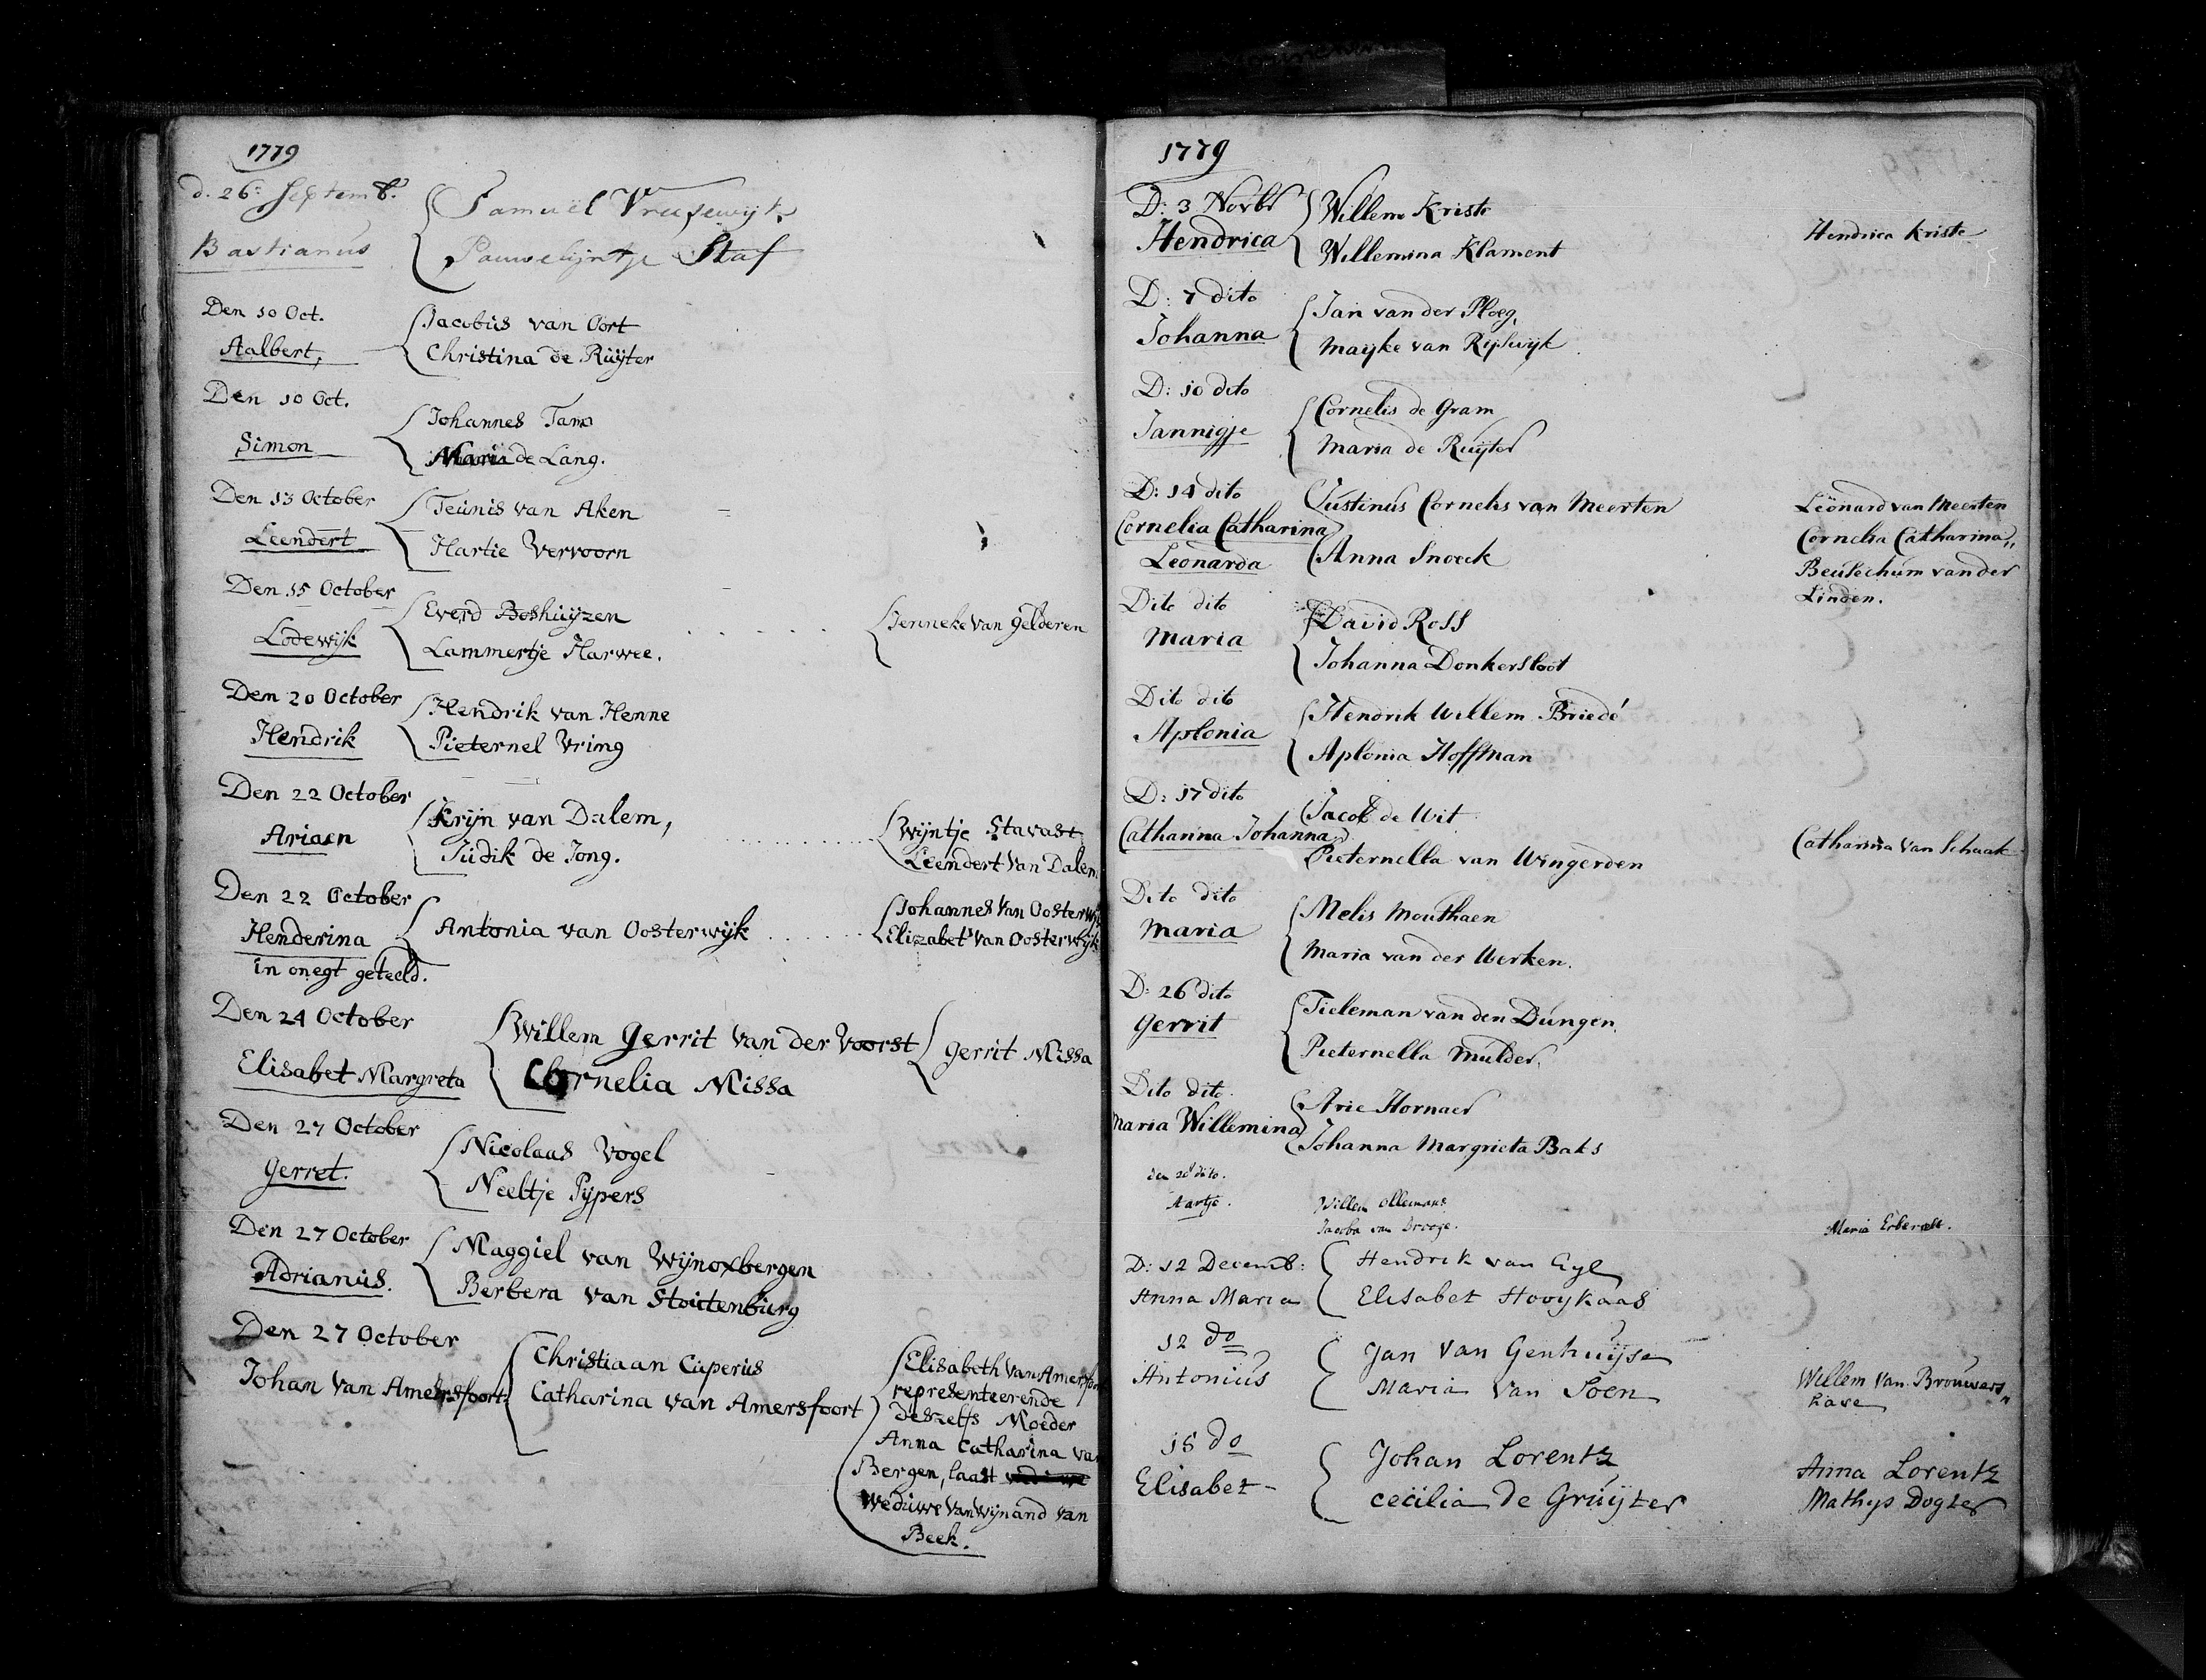 1779
d. 26: Septemb.
Bastianus
Samuël Vreeswijk
Pouwelijntje Staf
Den 10 Oct.
Aalbert,
Jacobus van Oort
Christina de Ruÿter
Den 10 Oct.
Simon
Johannes Tam
Maria de Lang.
Den 13 October
Leendert
Teunis van Aken
Hartie Vervoorn
Den 15 October
Lodewijk
Everd Boshuijzen
Lammertje Harwee.
Jenneke van Gelderen
Den 20 October
Hendrik
Hendrik van Henne
Pieternel Vring
Den 22 October
Ariaen
Krijn van Dalem,
Judik de Jong.
Wijntje Stavast
Leendert van Dalem
Den 22 October
Henderina
in onegt geteeld.
Antonia van Oosterwijk
Johannes van Oosterwij
Elizabet van Oosterwijk
Den 24 October
Elisabet Margreta
Willem Gerrit van der Voorst
Cornelia Missa
Gerrit Missa
Den 27 October
Gerret.
Nicolaas Vogel
Neeltje Pijpers
Den 27 October
Adrianus.
Maggiel van Wijnoxbergen
Berbera van Stoutenburg
Den 27 October
Johan van Amersfoort
Christiaan Cuperus
Catharina van Amersfoort
Elisabeth van Amersfoo
representeerende
deszelfs Moeder
Anna Catharina va
Bergen, laast
Weduwe van Wijnand van
Beek.
1779
D: 3 Novbr
Hendrica
Willem Kriste
Willemina Klament
Hendrica Kriste
D: 7 dito
Johanna
Jan van der Ploeg,
Maijke van Rijswijk
D: 10 dito
Jannigje
Cornelis de Gram
Maria de Ruijter
D: 14 dito
Cornelia Catharina
Leonarda
Justinus Cornelis van Meerten
Anna Snoeck
Leonard van Meerten
Cornelia Catharina,,
Beulechum van der
Linden.
Dito dito
Maria
David Ross
Johanna Donkersloot
Dito dito
Aplonia
Hendrik Willem Briedé
Aplonia Hoffman
D: 17 dito
Catharina Johanna
Jacob de Wit
Pieternella van Wingerden
Catharina van Schaak
Dito dito
Maria
Melis Mouthaen
Maria van der Werken.
D: 26 dito
Gerrit
Tieleman van den Dungen
Pieternella Mulder,
Dito dito.
Maria Willemina
Arie Hornaer
Johanna Margrieta Baks
den 28 dito.
Aartje.
Willem Ollemans
Jacoba van Drooge.
Maria
D: 12 Decemb:
Anna Maria
Hendrik van Eyl
Elisabet Hooykaas
12 do
Antonius
Jan van Genhuijse
Maria van Soen
Willem van Brouwers
have
15 do
Elisabet
Johan Lorentz
Cecilia de Gruÿter
Anna Lorentz
Mathys Dogter